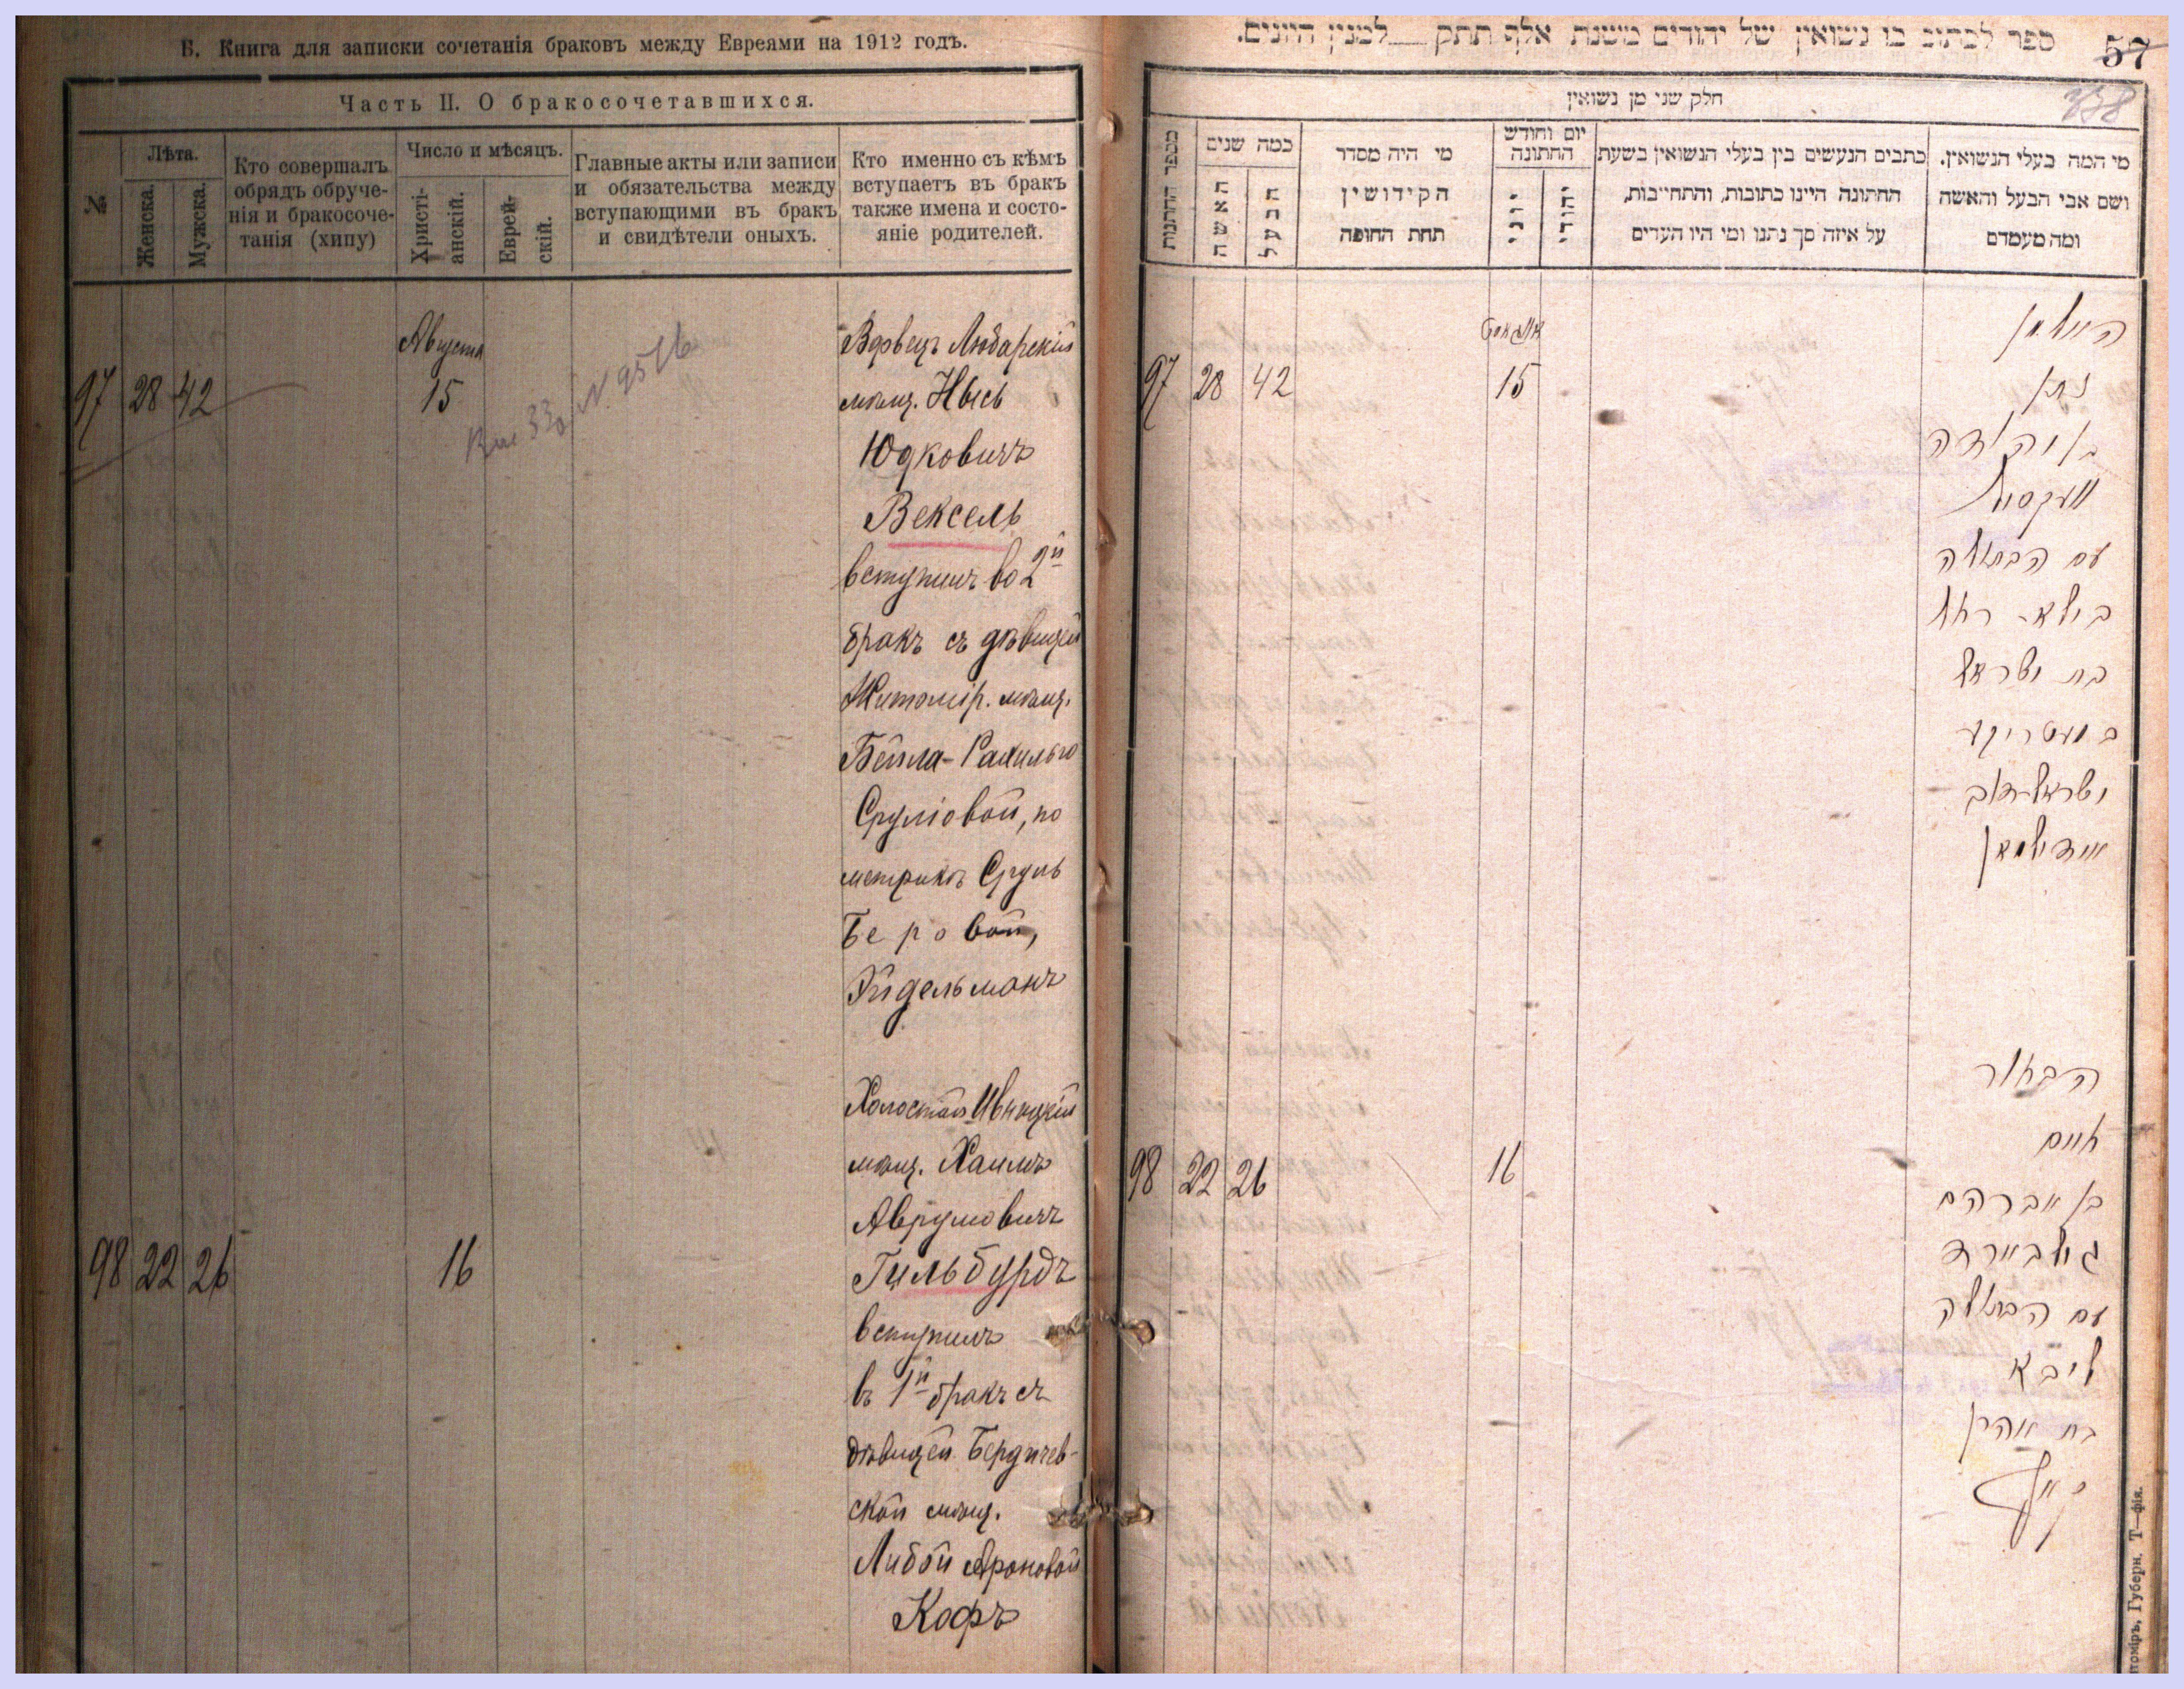 Б. Книга для записки сочетанія браковъ между Евреями на 1912 годъ.
Часть II. О бракосочетавшихся.
№
Лѣта.
Женска.
Мужска.
Кто совершалъ
обрядъ обруче-
нія и бракосоче-
танія (хипу)
Число и мѣсяцъ.
Христі-
анскій.
Еврей-
скій.
Главные акты или записи
и обязательства между
вступающими въ бракъ
и свидѣтели оныхъ.
Кто именно съ кѣмъ
вступаетъ въ бракъ
также имена и состо-
яніе родителей.
97 28 42
Августа
15
N. 9516
Вдовецъ Любарскій
мѣщ. Нысь
Юдковичъ
Вексель
вступилъ во 2й
бракъ съ дѣвицей
Житомір. мѣщ.
Бейла-Рахилью
Сруліовой, по
метрикѣ Сруль
Беровой,
Эйдельманъ
98 22 26
16
Холостой Ивницкій
мѣщ. Хаимъ
Аврумовичъ
Гильбурдъ
вступилъ
въ 1й бракъ съ
дѣвицей Бердичев-
ской мѣщ.
Либой Ароновой
Кофъ
ספר לכתוב בו נשואין של יהודים משנת אלף תתק למנין היונים.
57
חלק שני מן נשואין
מספר החתונות
כמה שנים
האשה
הבעל
מי היה מסדר
הקידושין
תחת החופה
יום וחודש
החתונה
יוני
יהודי
כתבים הנעשים בין בעלי הנשואין בשעת
החתונה היינו כתובות, והתחייבות,
על איזה סך נתנו ומי היו העדים
מי המה בעלי הנשואין.
ושם אבי הבעל והאשה
ומה מעמדם
97 28 42
אווגוסט
15
האלמן
נתן
בן יהודה
וועקסעל
עם הבתולה
ביילא רחל
בת ישראל
במעטריקע
ישראל-דוב
איידעלמאן
98 22 26
16
הבחור
חיים
בן אברהם
גילבורד
עם הבתולה
ליבא
בת אהרן
קאף
томіръ, Губерн. Т—фія.